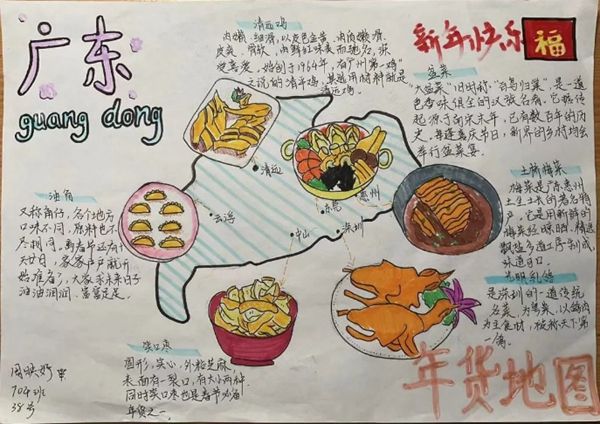 广东
guang dong
清远鸡
肉嫩、细滑，以皮色金黄、肉质嫩滑、
皮爽、骨软、肉鲜红味美而驰名，深
受喜爱，始创于1964年，有"广州第一鸡"
之说的清平鸡，其选用材料就是
清远鸡。
新年快乐
福
盆菜
大盆菜"旧时称"百鸟归巢"，是一道
色香味俱全的汉族名肴。它据传
起源于南宋末年，已有数百年的历
史。每逢喜庆节日，新界的乡村均会
举行盆菜宴。
土桥梅菜
梅菜是广东惠州
土生土长的著名特
产，它是用新鲜的
梅菜经晾晒、精选
飘盐等多道工序制成，
味道可口。
光明乳鸽
是深圳的一道传统
名菜，为粤菜，以鸽肉
为主食材，被称天下第
一鸽。
油角
又称角仔，各个地方
口味不同，原料也不
尽相同。离春节还有十
天廿日，家家户户就开
始准备了，大家寄未来日子
油油润润、富富足足。
清远
云浮
中山
东莞
惠州
深圳
笑口枣
圆形，实心，外粘芝麻，
表面有一裂口，有大小两种，
同时笑口枣也是春节必备
年货之一。
704班
38号
年货地图